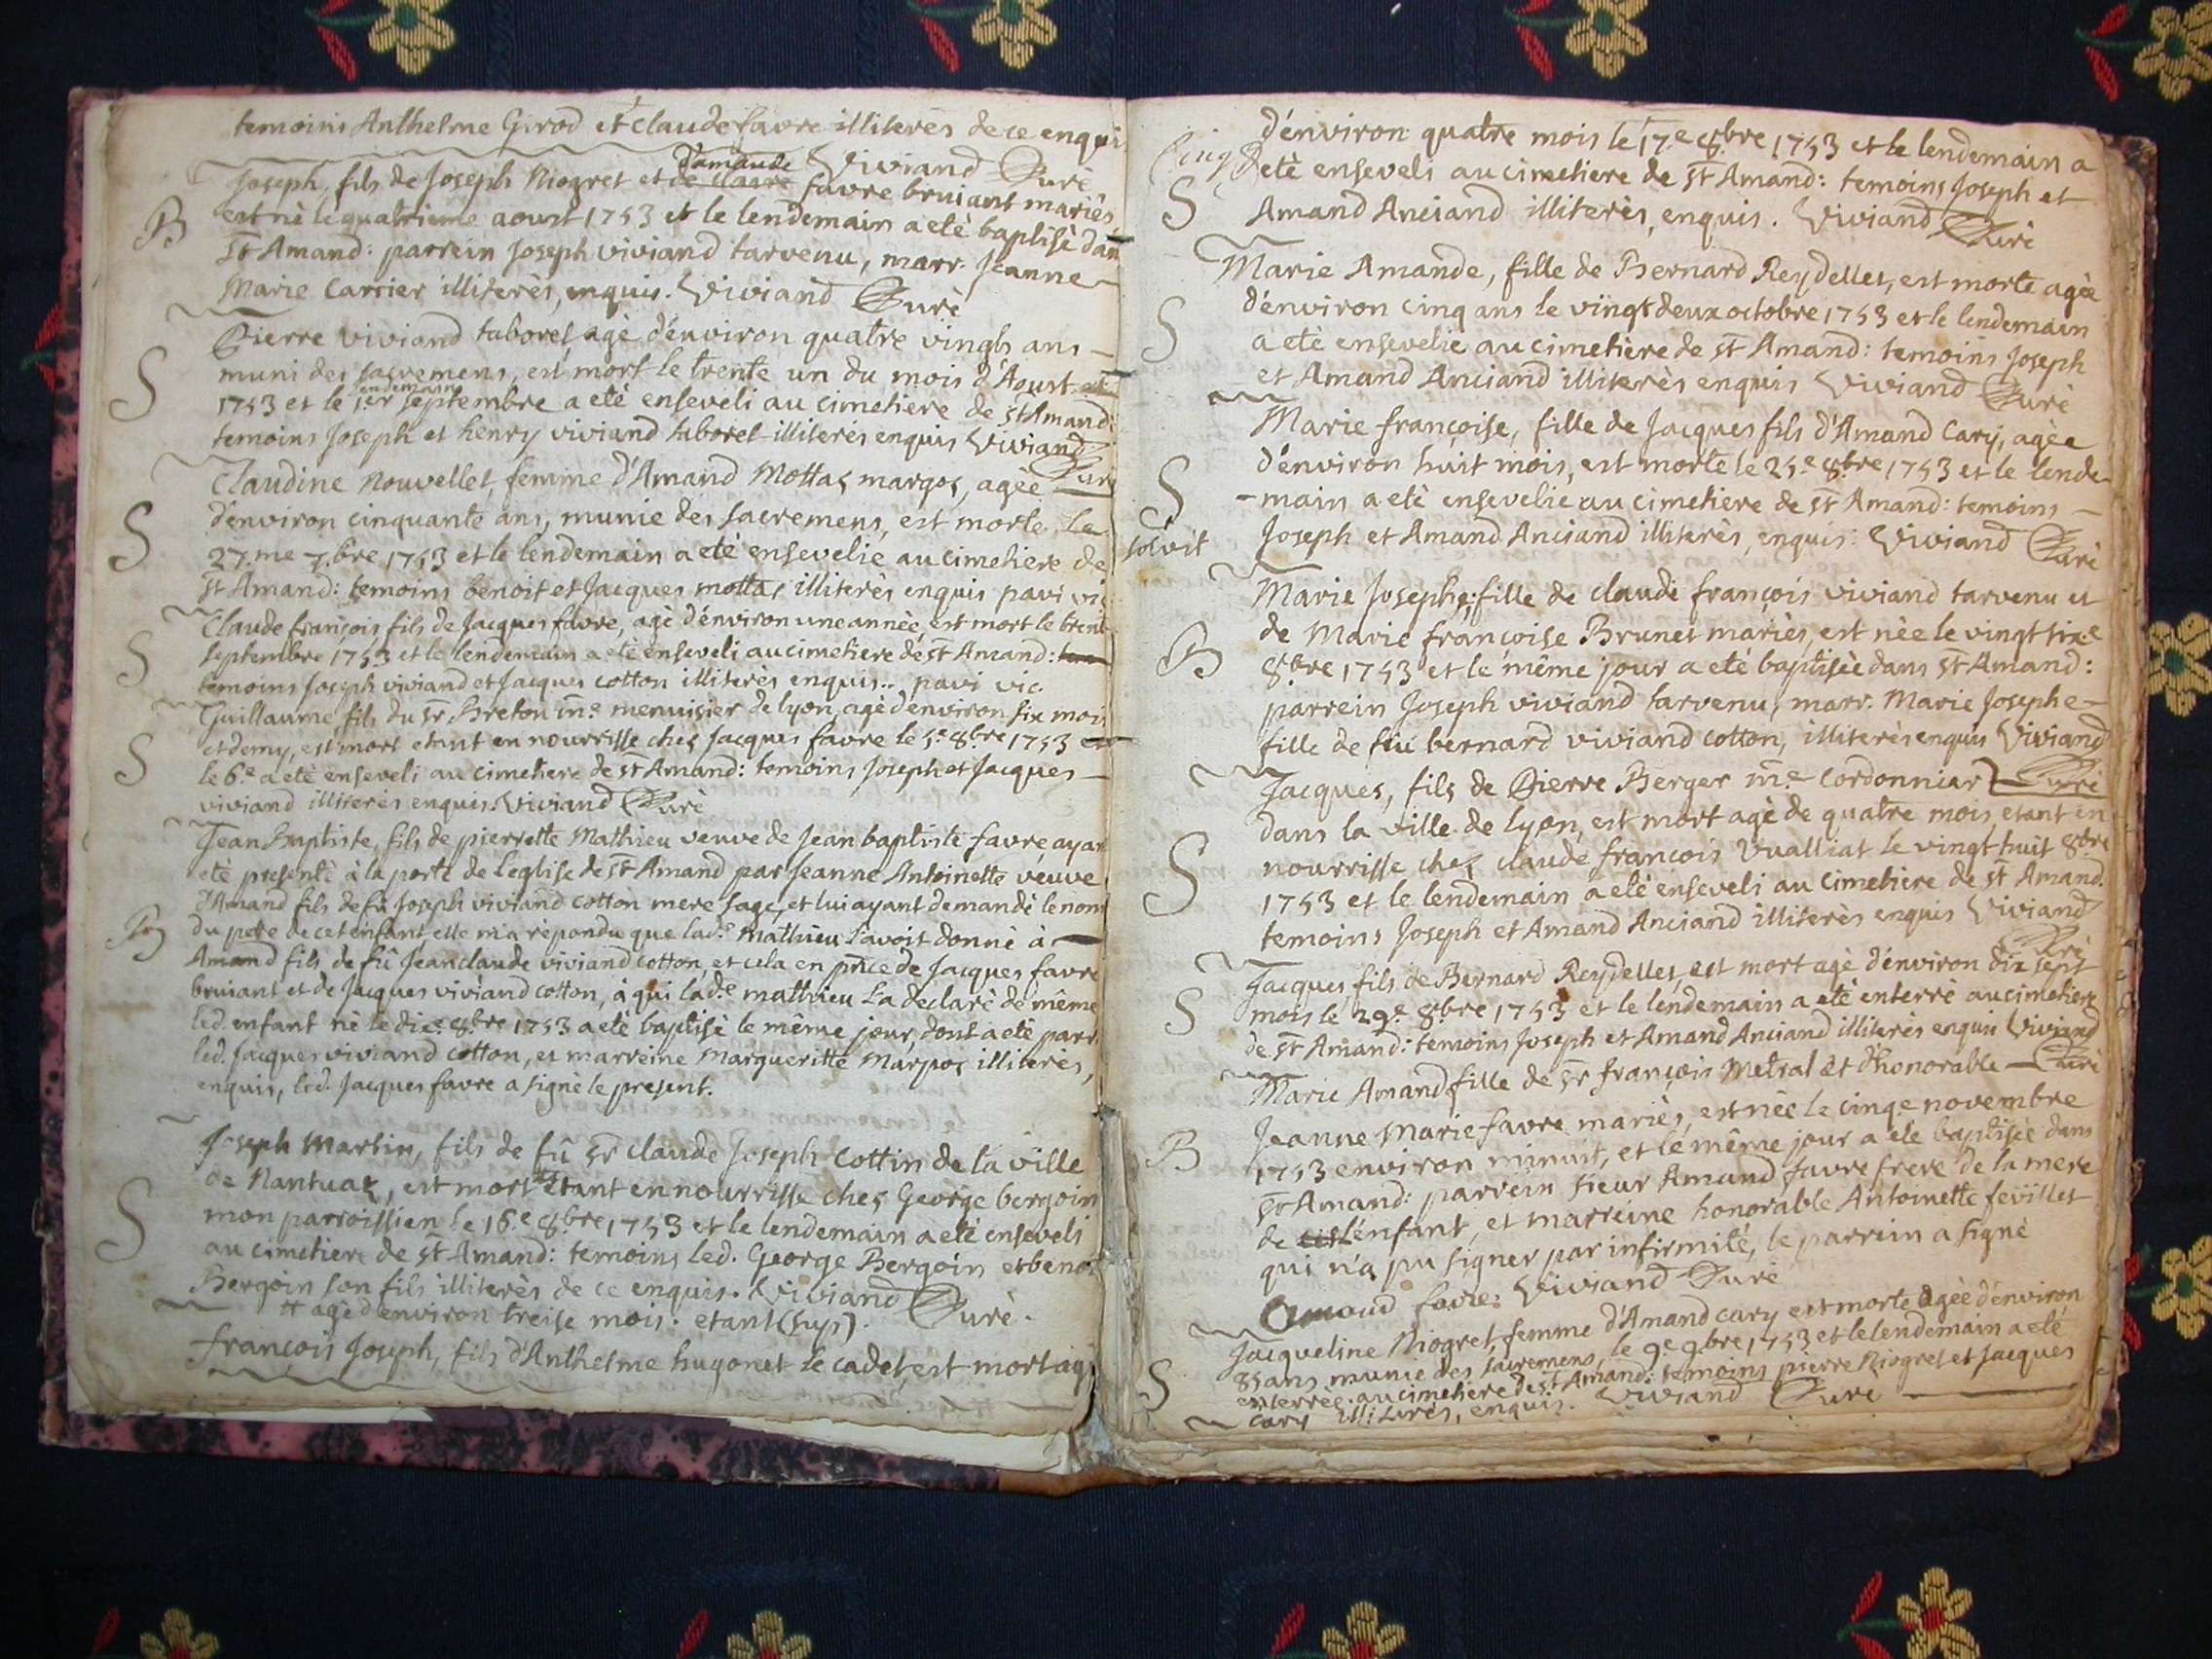 temoins Anthelme Girod et Claude favre illiterès de ce enqui
Viviand Curè
Joseph, fils de Joseph Niogret et de claire d'amande favre bruiant mariès
B
est nè le quatrieme aoust 1753 et le lendemain a etè baptisè dan
St Amand: parrein Joseph viviand tarvenu, marr. Jeanne
Marie Carrier illiterès, enquis. Viviand Curè
Pierre viviand taboret, agè d'environ quatre vingts ans
S
muni des sacremens, est mort le trente un du mois d'Aoust et
1753 et le lendemain 1.er septembre a etè enseveli au cimetiere de St Amand:
temoins Joseph et henry viviand taboret illiterés enquis Viviand
Curè
Claudine Nouvellet, femme d'Amand Mottaz margoz, agèe
S
d'environ cinquante ans, munie des sacremens, est morte Le
27.me 7.bre 1753 et le lendemain a etè ensevelie au cimetiere de
St Amand: temoins benoit et Jacques mottaz illiterès enquis pavi vic
Claude françois fils de Jacques favre, agè d'environ une annèe, est mort le trent
S
septembre 1753 et le lendemain a etè enseveli au cimetiere de St Amand: tem
temoins Joseph viviand et Jacques cotton illiterès enquis.. pavi vic.
Guillaume, fils du Sr Breton m.e menuisier de lyon, agè d'environ six mois
S
et demy, est mort etant en nourrisse chez Jacques favre le 5.e 8.bre 1753 et
le 6.e a etè enseveli au cimetiere de St Amand: temoins Joseph et Jacques
viviand illiterès enquis. Viviand Curè
Jean Baptiste, fils de pierrette Mathieu veuve de Jean baptiste favre, ayan
etè presentè à la porte de L'eglise de St Amand par Jeanne Antoinette veuve
d'Amand fils de fû Joseph viviand cotton mere sage, et lui ayant demandè le nom
B
du pere de cet enfant, elle m'a rèpondu que lad.e Mathieu L'avoit donnè à
Amand fils de fû Jean claude viviand cotton, et cela en prńce de Jacques favre
bruiant et de Jacques viviand cotton, à qui lad.e mathieu La declarè de même
led. enfant nè le dix.e 8.bre 1753 a etè baptisè le même jour, dont a etè parr
led. Jacques viviand cotton, et marreine Margueritte Marpoz illiterès,
enquis, led. Jacques favre a signè le present.
Joseph Martin, fils de fû Sr claude Joseph Cottin de la ville
S
de Nantuaz, est mort # etant en nourrisse chez George bergoin
mon parroissien le 16.e 8.bre 1753 et le lendemain a etè enseveli
au cimetiere de St Amand: temoins Led. George Bergoin et benoi
Bergoin son fils illiterès de ce enquis. Viviand Curè.
# agè d'environ treise mois. etant (sup).
françois Joseph, fils d'Anthelme hugonet le cadet, est mort ag
d'environ quatre mois le 17.e 8.bre 1753 et le lendemain a
S
etè enseveli au cimetiere de St Amand: temoins Joseph et
Amand Anciand illiterès, enquis. Viviand Curè
Marie Amande, fille de Bernard Reydellet, est morte agèe
S
d'environ cinq ans le vingt deux octobre 1753 et le lendemain
a etè ensevelie au cimetière de St Amand: temoins Joseph
et Amand Anciand illiterès enquis Viviand Curè
Marie françoise, fille de Jacques fils d'Amand Cary, agèe
S
d'environ huit mois, est morte le 25.e 8.bre 1753 et le lende
-main a etè ensevelie au cimetiere de St Amand: temoins
solvit
Joseph et Amand Anciand illiterès, enquis. Viviand Curè
Marie Josephe, fille de claude françois viviand tarvenu et
B
de Marie françoise Brunet mariès, est nèe le vingt six.e
8.bre 1753 et le même jour a etè baptisèe dans St Amand:
parrein Joseph viviand tarvenu, marr. Marie Josephe
fille de feu bernard viviand cotton, illiterès enquis Viviand
Curè
Jacques, fils de Pierre Berger m.e Cordonnier
S
dans la ville de Lyon, est mort agè de quatre mois, etant en
nourrisse chez claude francois Vualliat le vingt huit 8bre
1753 et le lendemain a etè enseveli au cimetiere de St Amand.
temoins Joseph et Amand Anciand illiterès enquis Viviand
Curè
Jacques, fils de Bernard Reydellet, est mort agè d'environ dix sept
S
mois le 29.e 8bre 1753 et le lendemain a etè enterrè au cimetiere
de St Amand: temoins Joseph et Amand Anciand illiterès enquis Viviand
Curè
Marie Amand fille de Sr françois Metral et d'honorable
B
Jeanne Marie favre mariès, est nèe le cinq.e novembre
1753 environ minuit, et le même jour a ete baptisèe dans
St Amand: parrein sieur Amand favre frere de la mere
de cet l'enfant, et marreine honorable Antoinette feüillet
qui n'a pu signer par infirmité, le parrein a signè
Amand favre: Viviand Curè
Jacqueline Niogret, femme d'Amand cary est morte agèe d'environ
S
85 ans, munie des sacremens, le 9.e 9.bre 1753 et le lendemain a etè
enterrèe au cimetière de St Amand: temoins pierre Niogret et Jacques
Cary illiterès, enquis. Viviand Curè